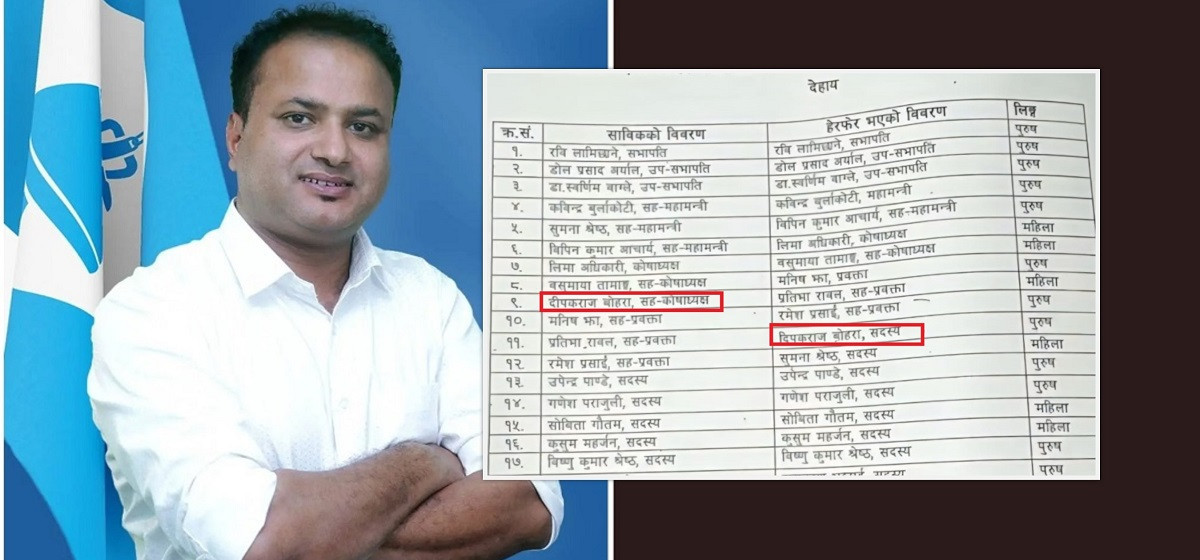 देहाय
क्र.सं. साविकको विवरण हेरफेर भएको विवरण लिङ्ग
१. रवि लामिछाने, सभापति रवि लामिछाने, सभापति पुरुष
२. डोल प्रसाद अर्याल, उप-सभापति डोल प्रसाद अर्याल, उप-सभापति पुरुष
३. डा.स्वर्णिम वाग्ले, उप-सभापति डा.स्वर्णिम वाग्ले, उप-सभापति पुरुष
४. कविन्द्र बुर्लाकोटी, सह-महामन्त्री कविन्द्र बुर्लाकोटी, महामन्त्री पुरुष
५. सुमना श्रेष्ठ, सह-महामन्त्री विपिन कुमार आचार्य, सह-महामन्त्री पुरुष
६. विपिन कुमार आचार्य, सह-महामन्त्री लिमा अधिकारी, कोषाध्यक्ष महिला
७. लिमा अधिकारी, कोषाध्यक्ष वसुमाया तामाङ, सह-कोषाध्यक्ष महिला
८. वसुमाया तामाङ, सह-कोषाध्यक्ष मनिष झा, प्रवक्ता पुरुष
९. दीपकराज बोहरा, सह-कोषाध्यक्ष प्रतिभा रावल, सह-प्रवक्ता महिला
१०. मनिष झा, सह-प्रवक्ता रमेश प्रसाई, सह-प्रवक्ता पुरुष
११. प्रतिभा रावल, सह-प्रवक्ता दिपकराज बोहरा, सदस्य पुरुष
१२. रमेश प्रसाई, सह-प्रवक्ता सुमना श्रेष्ठ, सदस्य महिला
१३. उपेन्द्र पाण्डे, सदस्य उपेन्द्र पाण्डे, सदस्य पुरुष
१४. गणेश पराजुली, सदस्य गणेश पराजुली, सदस्य पुरुष
१५. सोबिता गौतम, सदस्य सोबिता गौतम, सदस्य महिला
१६. कुसुम महर्जन, सदस्य कुसुम महर्जन, सदस्य महिला
१७. विष्णु कुमार श्रेष्ठ, सदस्य विष्णु कुमार श्रेष्ठ, सदस्य पुरुष
पुरुष